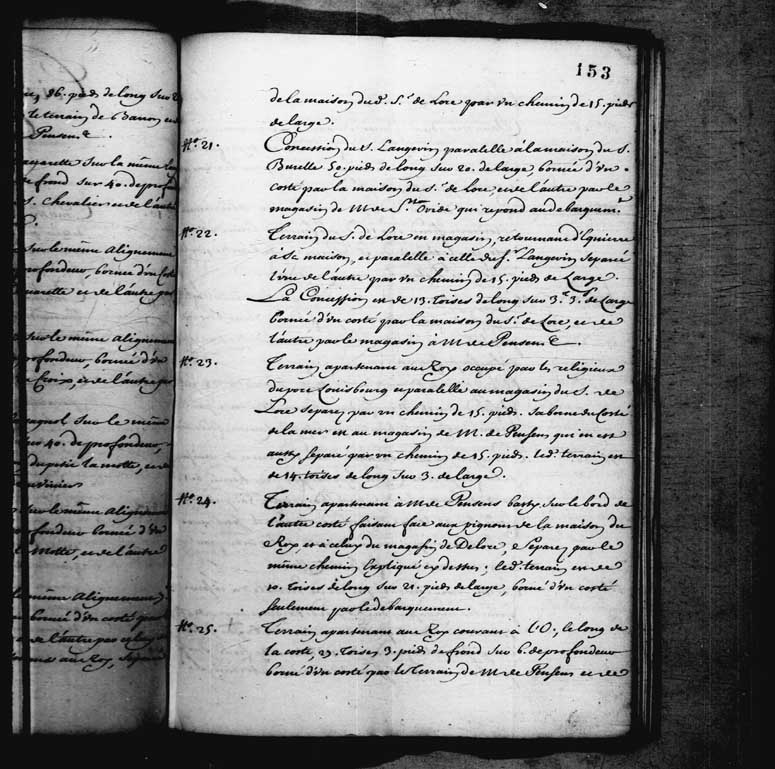 153
de la maison du d. S.r de Lore par un chemin de 15. pieds
de large.
N.o 21. Concession du S. Langevin paralelle a la maison du S.
Burelle 50. pieds de long sur 20. de large, bornée d'un
costé par la maison du S.r de Lore, et de l'autre par le
magasin de M. de S.t Ovide qui repond au debarquem.t
N.o 22. Terrain du S. de Lore en magasin, retournant d'Equierre
à Sa maison, et paralelle à celle du S. Langevin separée
l'une de l'autre par un chemin de 15. pieds de Large.
La Concession est de 13. Toises de long sur 3.t 3.p de Large
bornée d'un costé par la maison du S.r de Lore, et de
l'autre par le magasin à M. de Pensens &.
N.o 23. Terrain apartenant au Roy occupé par les religieux
du port Louisbourg et paralelle au magasin du S. de
Lore separez par un chemin de 15. pieds. Sa borne du Costé
de la mer est au magasin de M. de Pensens qui en est
aussy separé par un chemin de 15. pieds. led. terrain est
de 14. toises de long sur 3. de large.
N.o 24. Terrain apartenant à M. de Pensens basty sur le bord de
l'autre costé faisant face aux pignons de la maison du
Roy, et à celuy du magasin de De Lore, Separez par le
même chemin Expliqué cy dessus; led. terrain est de
10. toises de long sur 21. pieds de large, borné d'un costé
seulement par le debarquement.
N.o 25. Terrain apartenant au Roy courant à l'O; le long de
la coste, 23. Toises 3. pieds de frond sur 6. de profondeur
borné d'un costé par le Terrain de M. de Pensens et de
26. pieds de long sur
le terrain de Baron et
Pensens &
sur la même
de frond sur 40. de profon
S. Chevalier et de l'autre
Sur le même Alignement
profondeur, bornée d'un Costé
et de l'autre par
sur le même alignement
profondeur, bornée d'un
Croix, et de l'autre par
sur le même
sur 40. de profondeur,
dupetis la motte, et de
Sur le même alignement
profondeur bornée d'un
Motte, et de l'autre
le même Alignement
bornée d'un costé par
et de l'autre par
au Roy, Separé